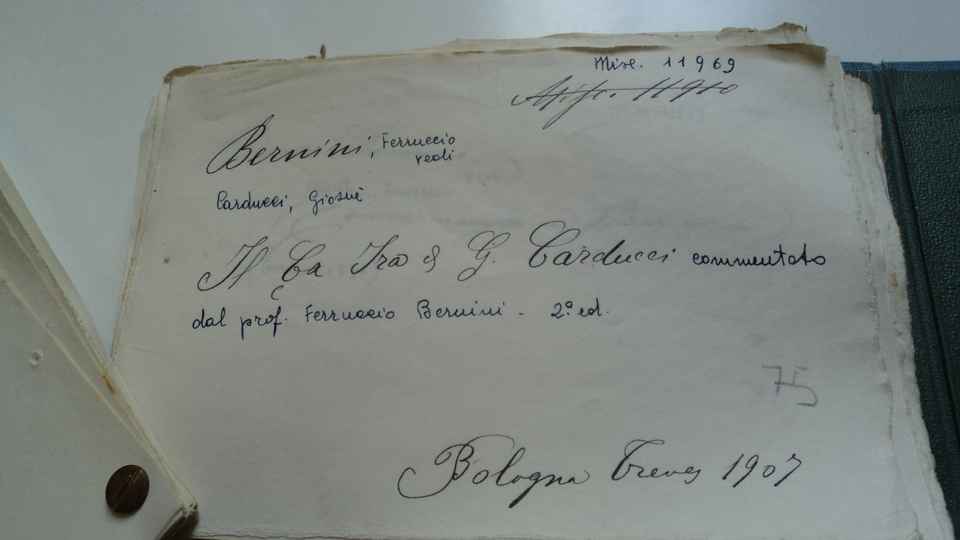 Misc. 11969
11910
Bernini, Ferruccio
vedi
Carducci, Giosuè
Il Ça Ira di G. Carducci commentato
dal prof. Ferruccio Bernini - 2ª ed.
75
Bologna Treves 1907